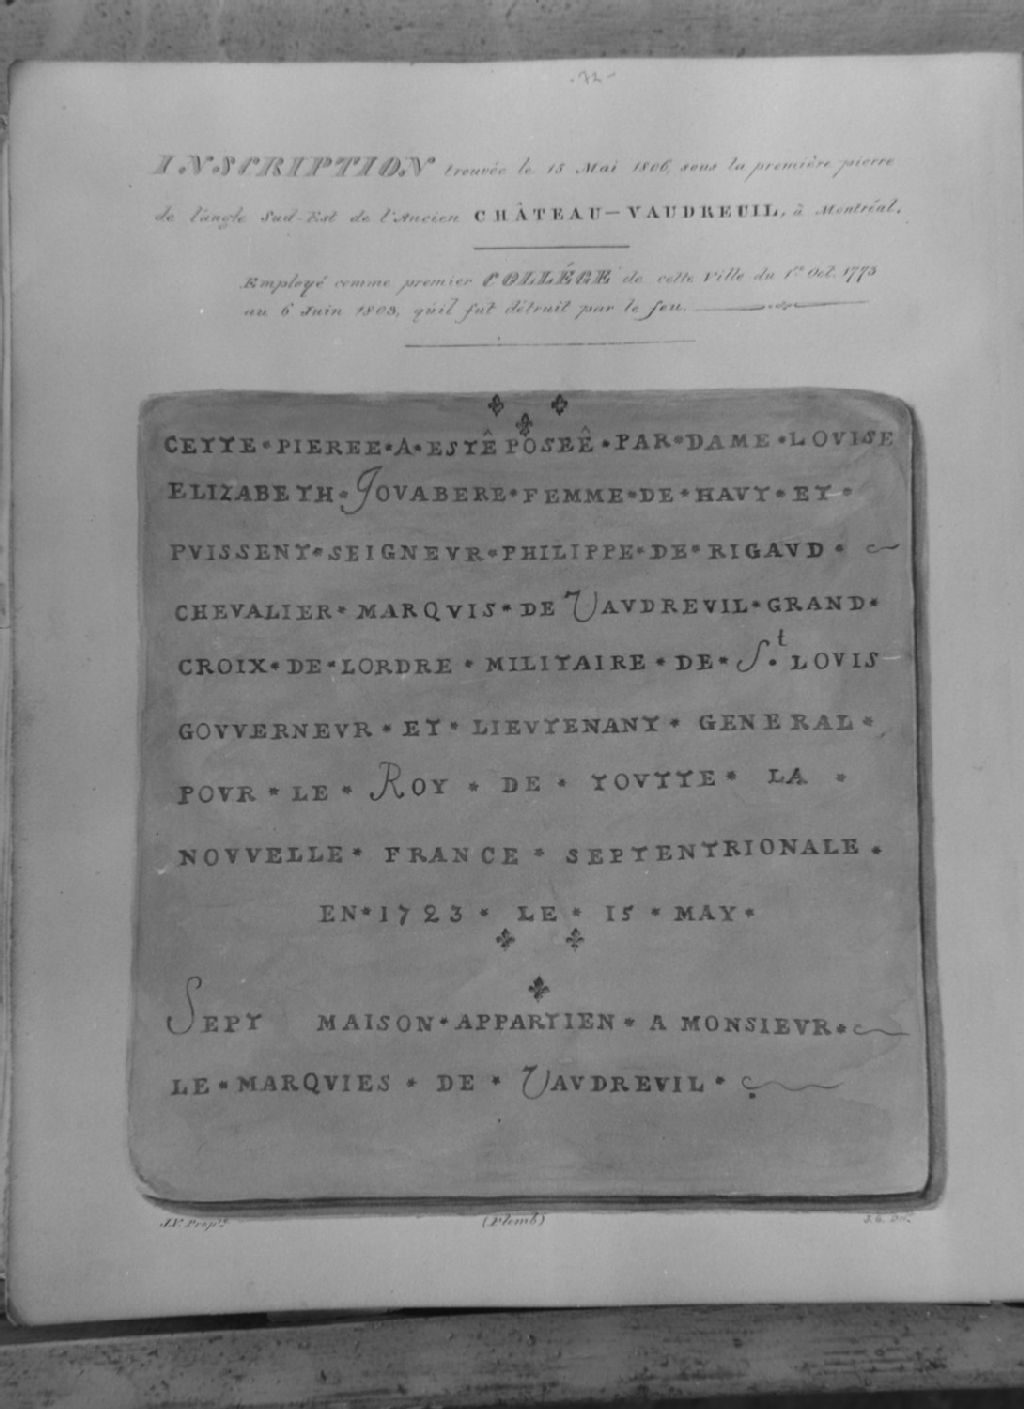 - 72 -
INSCRIPTION trouvée le 15 Mai 1806, sous la première pierre
de l'angle Sud-Est de l'Ancien CHÂTEAU-VAUDREUIL, à Montréal.
Employé comme premier COLLÉGE de cette Ville du 1er Oct. 1773
au 6 Juin 1803, qu'il fut détruit par le feu.
CETTE * PIEREE * A * ESTÊ POSEÊ * PAR * DAME * LOVISE
ELIZABETH * JOVABERE * FEMME * DE * HAVT * ET *
PVISSENT * SEIGNEVR * PHILIPPE * DE * RIGAVD *
CHEVALIER * MARQVIS * DE VAVDREVIL * GRAND *
CROIX * DE * LORDRE * MILITAIRE * DE * St. LOVIS
GOVVERNEVR * ET * LIEVTENANT * GENERAL *
POVR * LE * ROY * DE * TOVTTE * LA *
NOVVELLE * FRANCE * SEPTENTRIONALE *
EN * 1723 * LE * 15 * MAY *
SEPT MAISON * APPARTIEN * A MONSIEVR *
LE * MARQVIES * DE * VAVDREVIL *
J.V. Propt.
(Plomb)
J.D. Delt.